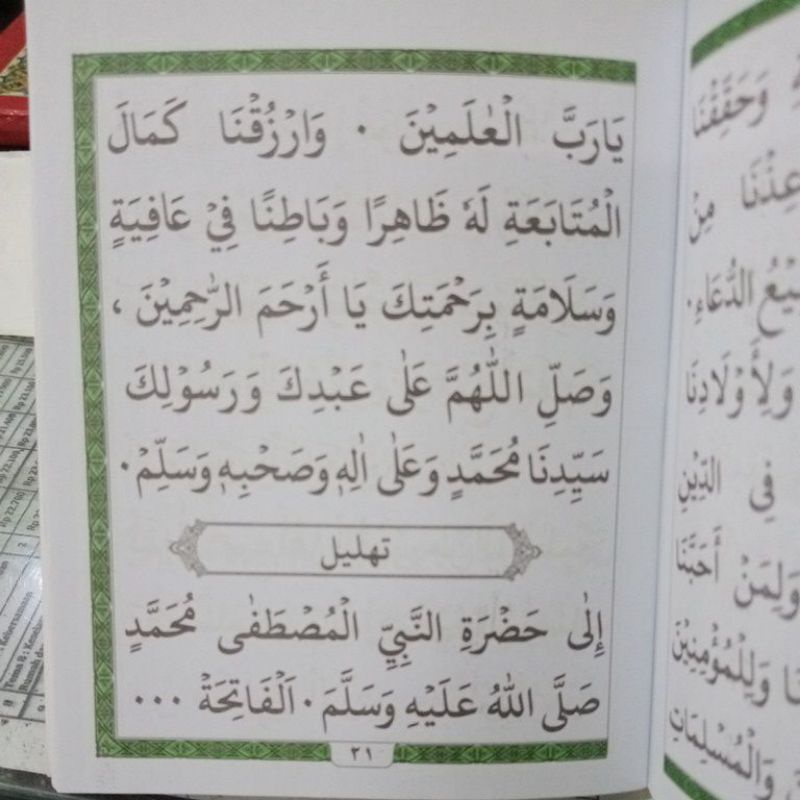 يَارَبَّ الْعٰلَمِيْنَ ٠ وَارْزُقْنَا كَمَالَ
الْمُتَابَعَةِ لَهٗ ظَاهِرًا وَبَاطِنًا فِيْ عَافِيَةٍ
وَسَلَامَةٍ بِرَحْمَتِكَ يَا أَرْحَمَ الرّٰحِمِيْنَ ،
وَصَلِّ اللّٰهُمَّ عَلٰى عَبْدِكَ وَرَسُوْلِكَ
سَيِّدِنَا مُحَمَّدٍ وَعَلٰى اٰلِهٖ وَصَحْبِهٖ وَسَلِّمْ ٠
تهليل
إِلٰى حَضْرَةِ النَّبِيِّ الْمُصْطَفٰى مُحَمَّدٍ
صَلَّى اللّٰهُ عَلَيْهِ وَسَلَّمَ ٠ اَلْفَاتِحَةْ ٠٠٠
٢١
وَحَقِّقْنَا
مِنْ
الدُّعَاءِ ٠
وَلِأَوْلَادِنَا
فِي الدِّيْنِ
وَلِمَنْ أَحَبَّنَا
وَلِلْمُؤْمِنِيْنَ
وَالْمُسْلِمَاتِ